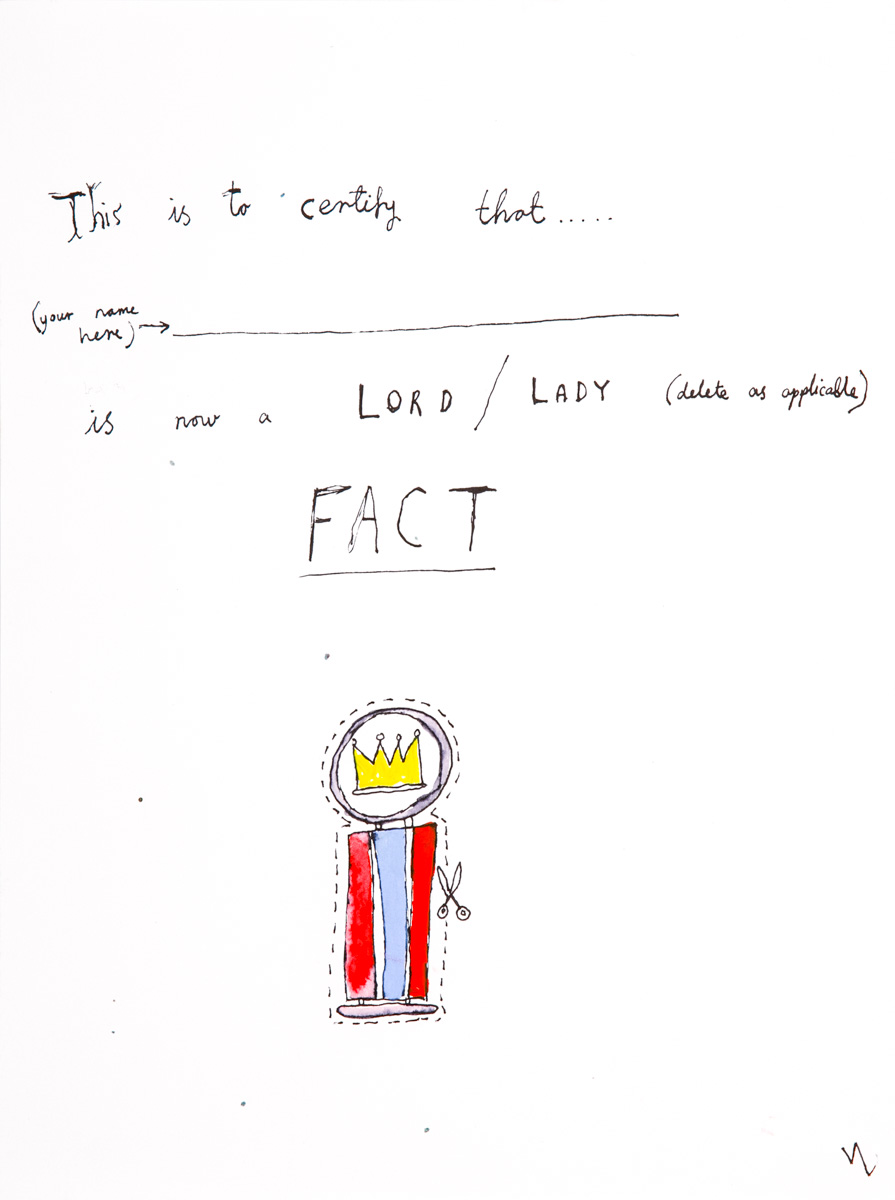 This is to certify that.....
(your name
here)→
is now a LORD / LADY (delete as applicable)
FACT